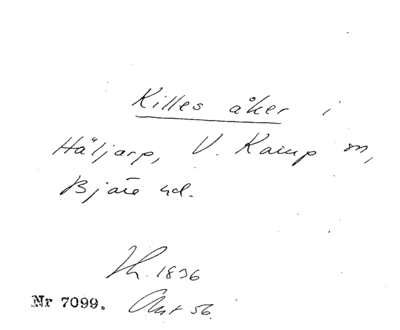 Killes åker i
Häljarp, V. Karup sn,
Bjäre hd.
Th. 1836
Nr 7099. Akt 56.